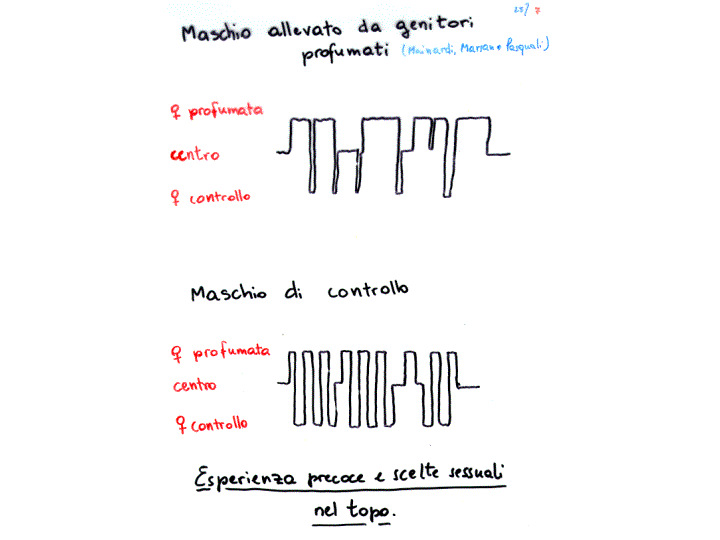 25/7
Maschio allevato da genitori
profumati (Mainardi, Marsan e Pasquali)
♀ profumata
centro
♀ controllo
Maschio di controllo
♀ profumata
centro
♀ controllo
Esperienza precoce e scelte sessuali
nel topo.